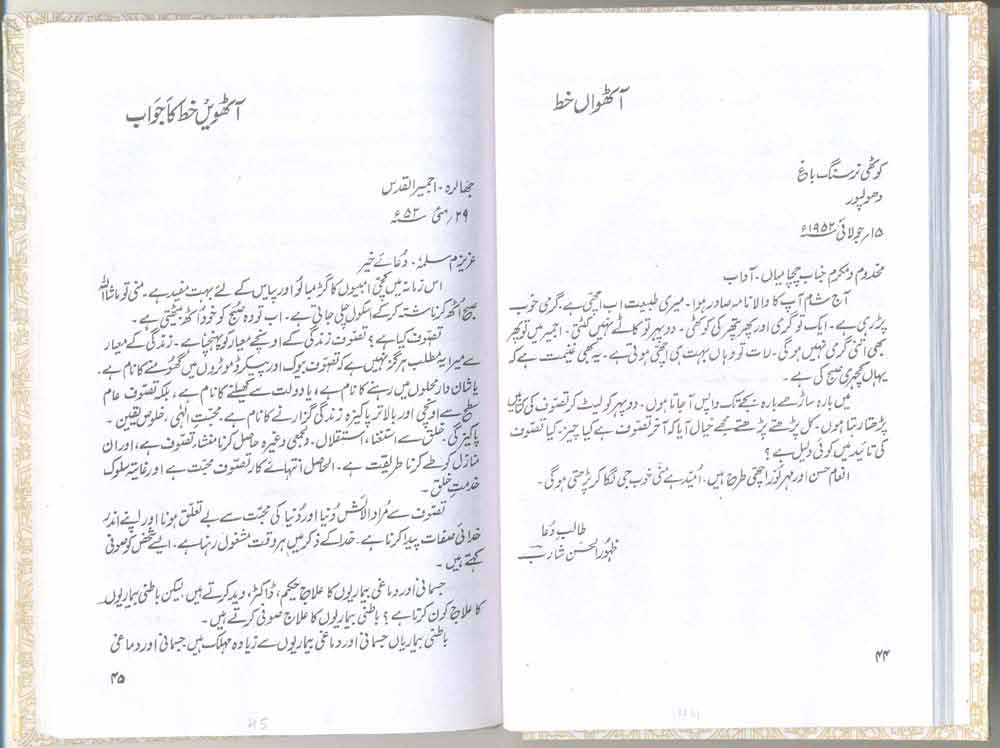 آٹھواں خط
کوٹھی نرسنگ باغ
دھولپور
۱۵؍ جولائی ۱۹۵۲ء
مخدوم و مکرم جناب چچا میاں۔ آداب
آج شام آپ کا والا نامہ صادر ہوا۔ میری طبیعت اب اچھی ہے، گرمی خوب
پڑ رہی ہے۔ ایک تو گرمی اور پھر پتھر کی کوٹھی۔ دوپہر تو کاٹے نہیں کٹتی۔ اجمیر میں تو پھر
بھی اتنی گرمی نہیں ہوگی۔ رات تو وہاں بہت ہی اچھی ہوتی ہے۔ یہ بھی غنیمت ہے کہ
یہاں کچہری صبح کی ہے۔
میں بارہ ساڑھے بارہ بجے تک واپس آجاتا ہوں۔ دوپہر کو لیٹ کر تصوف کی کتابیں
پڑھتا رہتا ہوں۔ کل پڑھتے پڑھتے مجھے خیال آیا کہ آخر تصوف ہے کیا چیز۔ کیا تصوف
کی تائید میں کوئی دلیل ہے؟
انعام حسن اور مہر نور اچھی طرح ہیں۔ اُمید ہے منی خوب جی لگا کر پڑھتی ہوگی۔
طالب دُعا
ظہور الحسن شارب
۴۴
آٹھویں خط کا جواب
جھالرہ۔ اجمیر القدس
۲۹؍ مئی ۵۲ء
عزیزم سلمہٗ۔ دُعائے خیر
اس زمانہ میں کچی امبیوں کا گڑمبا لُو اور پیاس کے لئے بہت مفید ہے۔ منی تو ماشاءاللہ
صبح اُٹھ کر ناشتہ کرکے اسکول چلی جاتی ہے۔ اب تو وہ صبح کو خود اُٹھ بیٹھتی ہے۔
تصوف کیا ہے؟ تصوف زندگی کے اونچے معیار کو پہنچنا ہے۔ زندگی کے معیار
سے میرا یہ مطلب ہرگز نہیں ہے کہ تصوف بوک اور پیکرڈ موٹروں میں گھومنے کا نام ہے۔
یا شان دار محلوں میں رہنے کا نام ہے، یا دولت سے کھیلنے کا نام ہے، بلکہ تصوف عام
سطح سے اونچی اور بالاتر پاکیزہ زندگی گزارنے کا نام ہے۔ محبت الٰہی، خلوص یقین۔
پاکیزگی، خلق سے استغناء، استقلال۔ دلجمعی وغیرہ حاصل کرنا منشاء تصوف ہے، اور ان
منازل کو طے کرنا طریقت ہے۔ الحاصل انتہائے کار تصوف محبت ہے اور غایتہ سلوک
خدمت خلق۔
تصوف سے مُراد آلائش دُنیا اور دُنیا کی محبت سے بے تعلق ہونا اور اپنے اندر
خدائی صفات پیدا کرنا ہے۔ خدا کے ذکر میں ہر وقت مشغول رہنا ہے۔ ایسے شخص کو صوفی
کہتے ہیں۔
جسمانی اور دماغی بیماریوں کا علاج حکیم، ڈاکٹر، وید کرتے ہیں لیکن باطنی بیماریوں
کا علاج کون کرتا ہے؟ باطنی بیماریوں کا علاج صوفی کرتے ہیں۔
باطنی بیماریاں جسمانی اور دماغی بیماریوں سے زیادہ مہلک ہیں جسمانی اور دماغی
۴۵
45